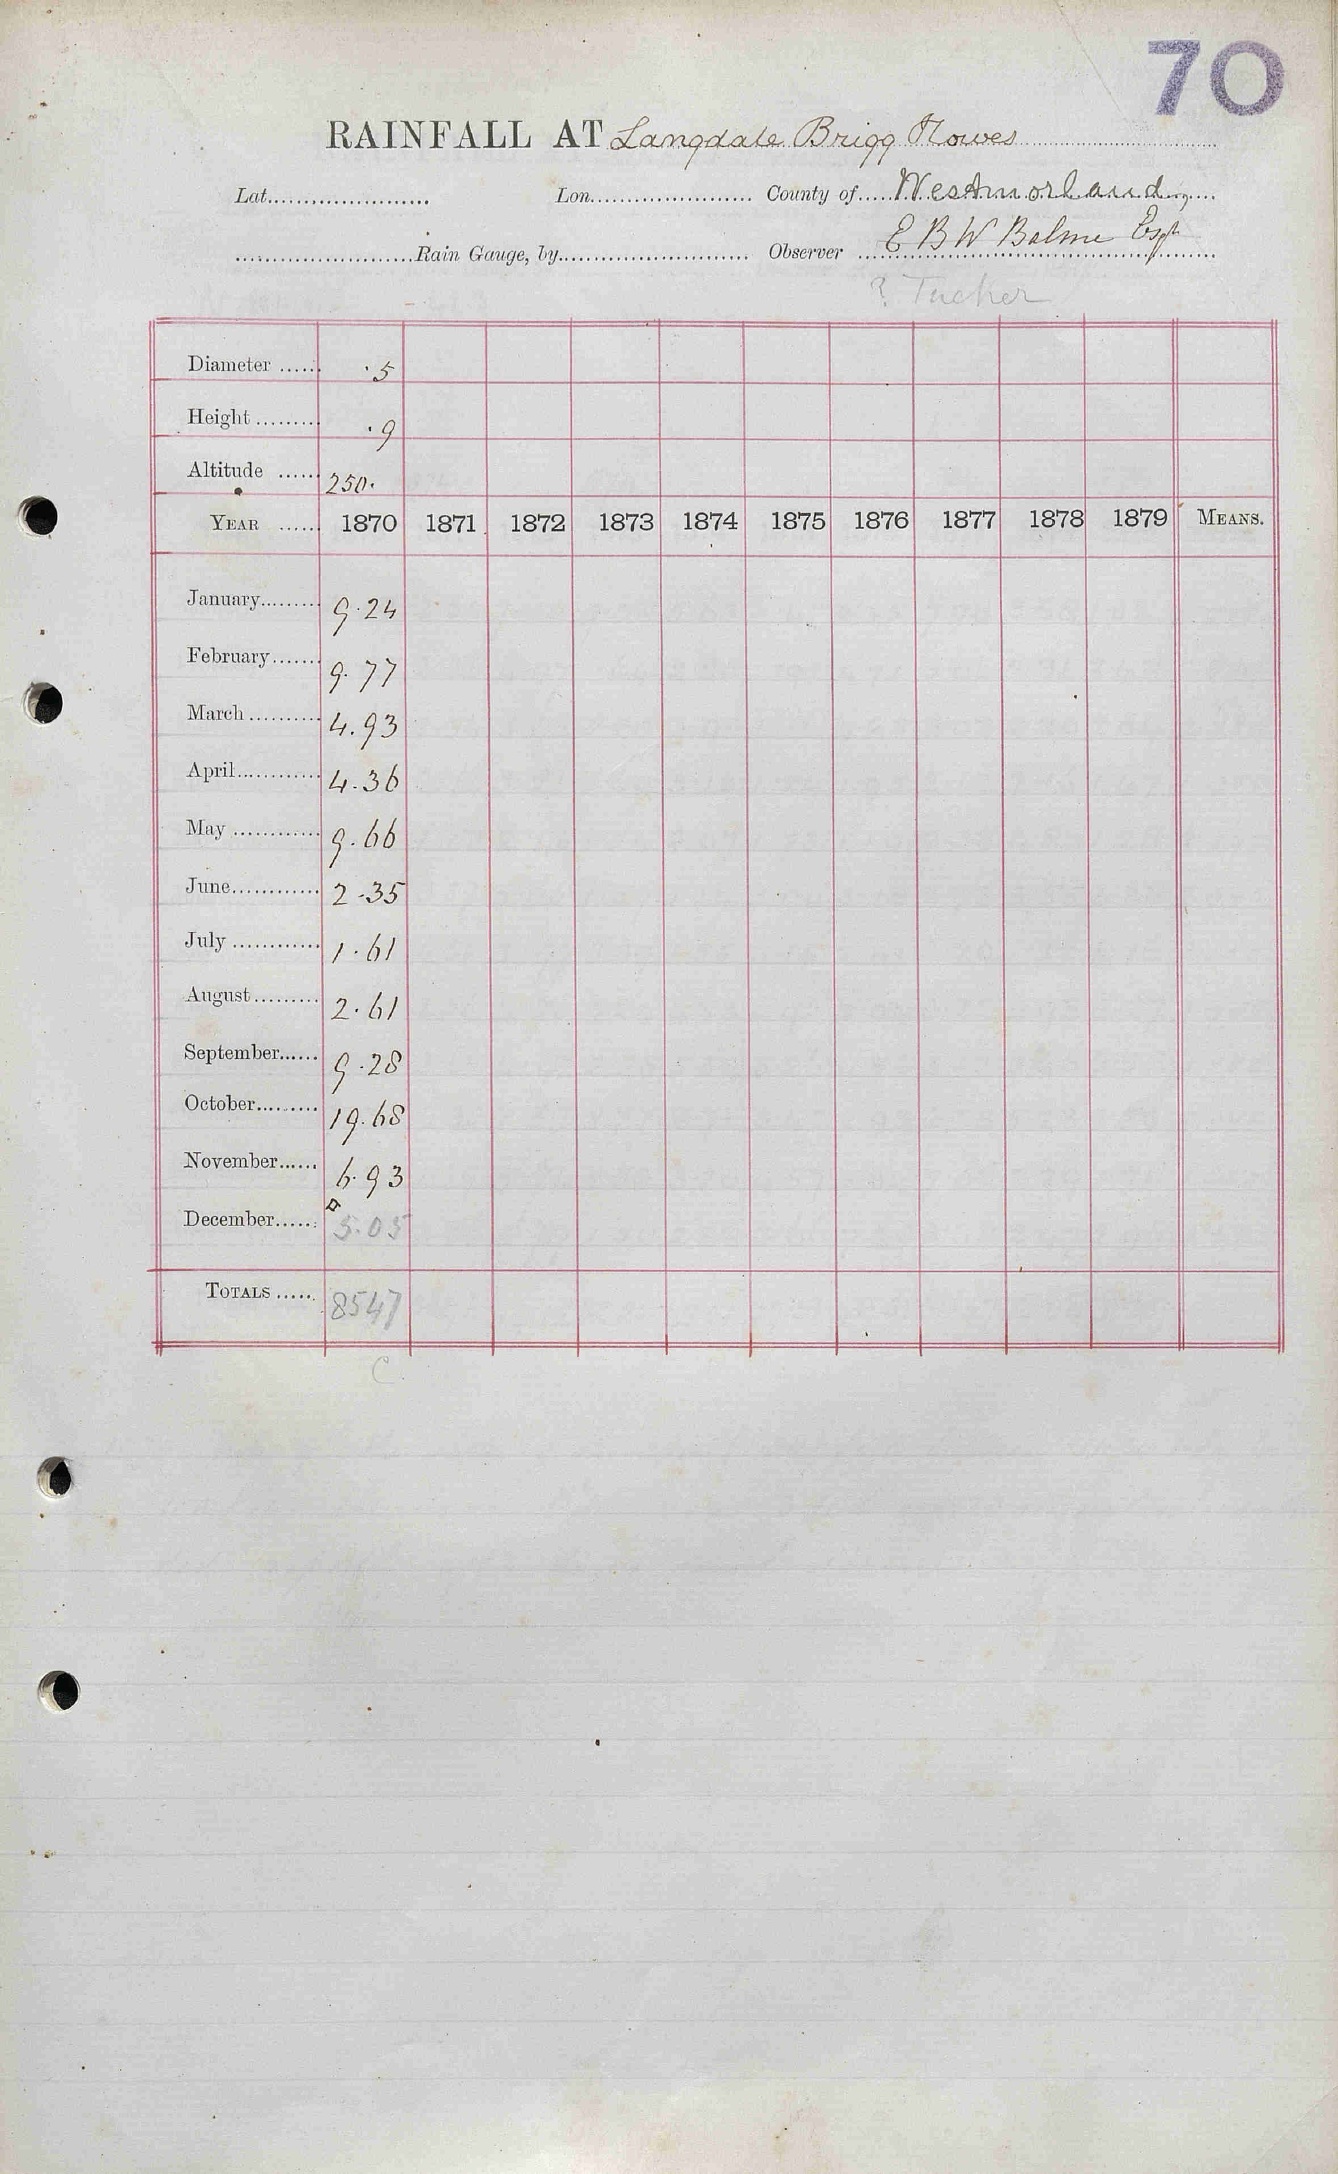 70
RAINFALL AT Langdale Brigg Howes
Lat. Lon. County of Westmorland
Rain Gauge, by Observer E B W Balme Esqr
? Tucker
Diameter ·5
Height ·9
Altitude 250·
YEAR 1870 1871 1872 1873 1874 1875 1876 1877 1878 1879 MEANS.
January 9·24
February 9·77
March 4·93
April 4·36
May 9·66
June 2·35
July 1·61
August 2·61
September 9·28
October 19·68
November 6·93
December 5·05
TOTALS 8547
C